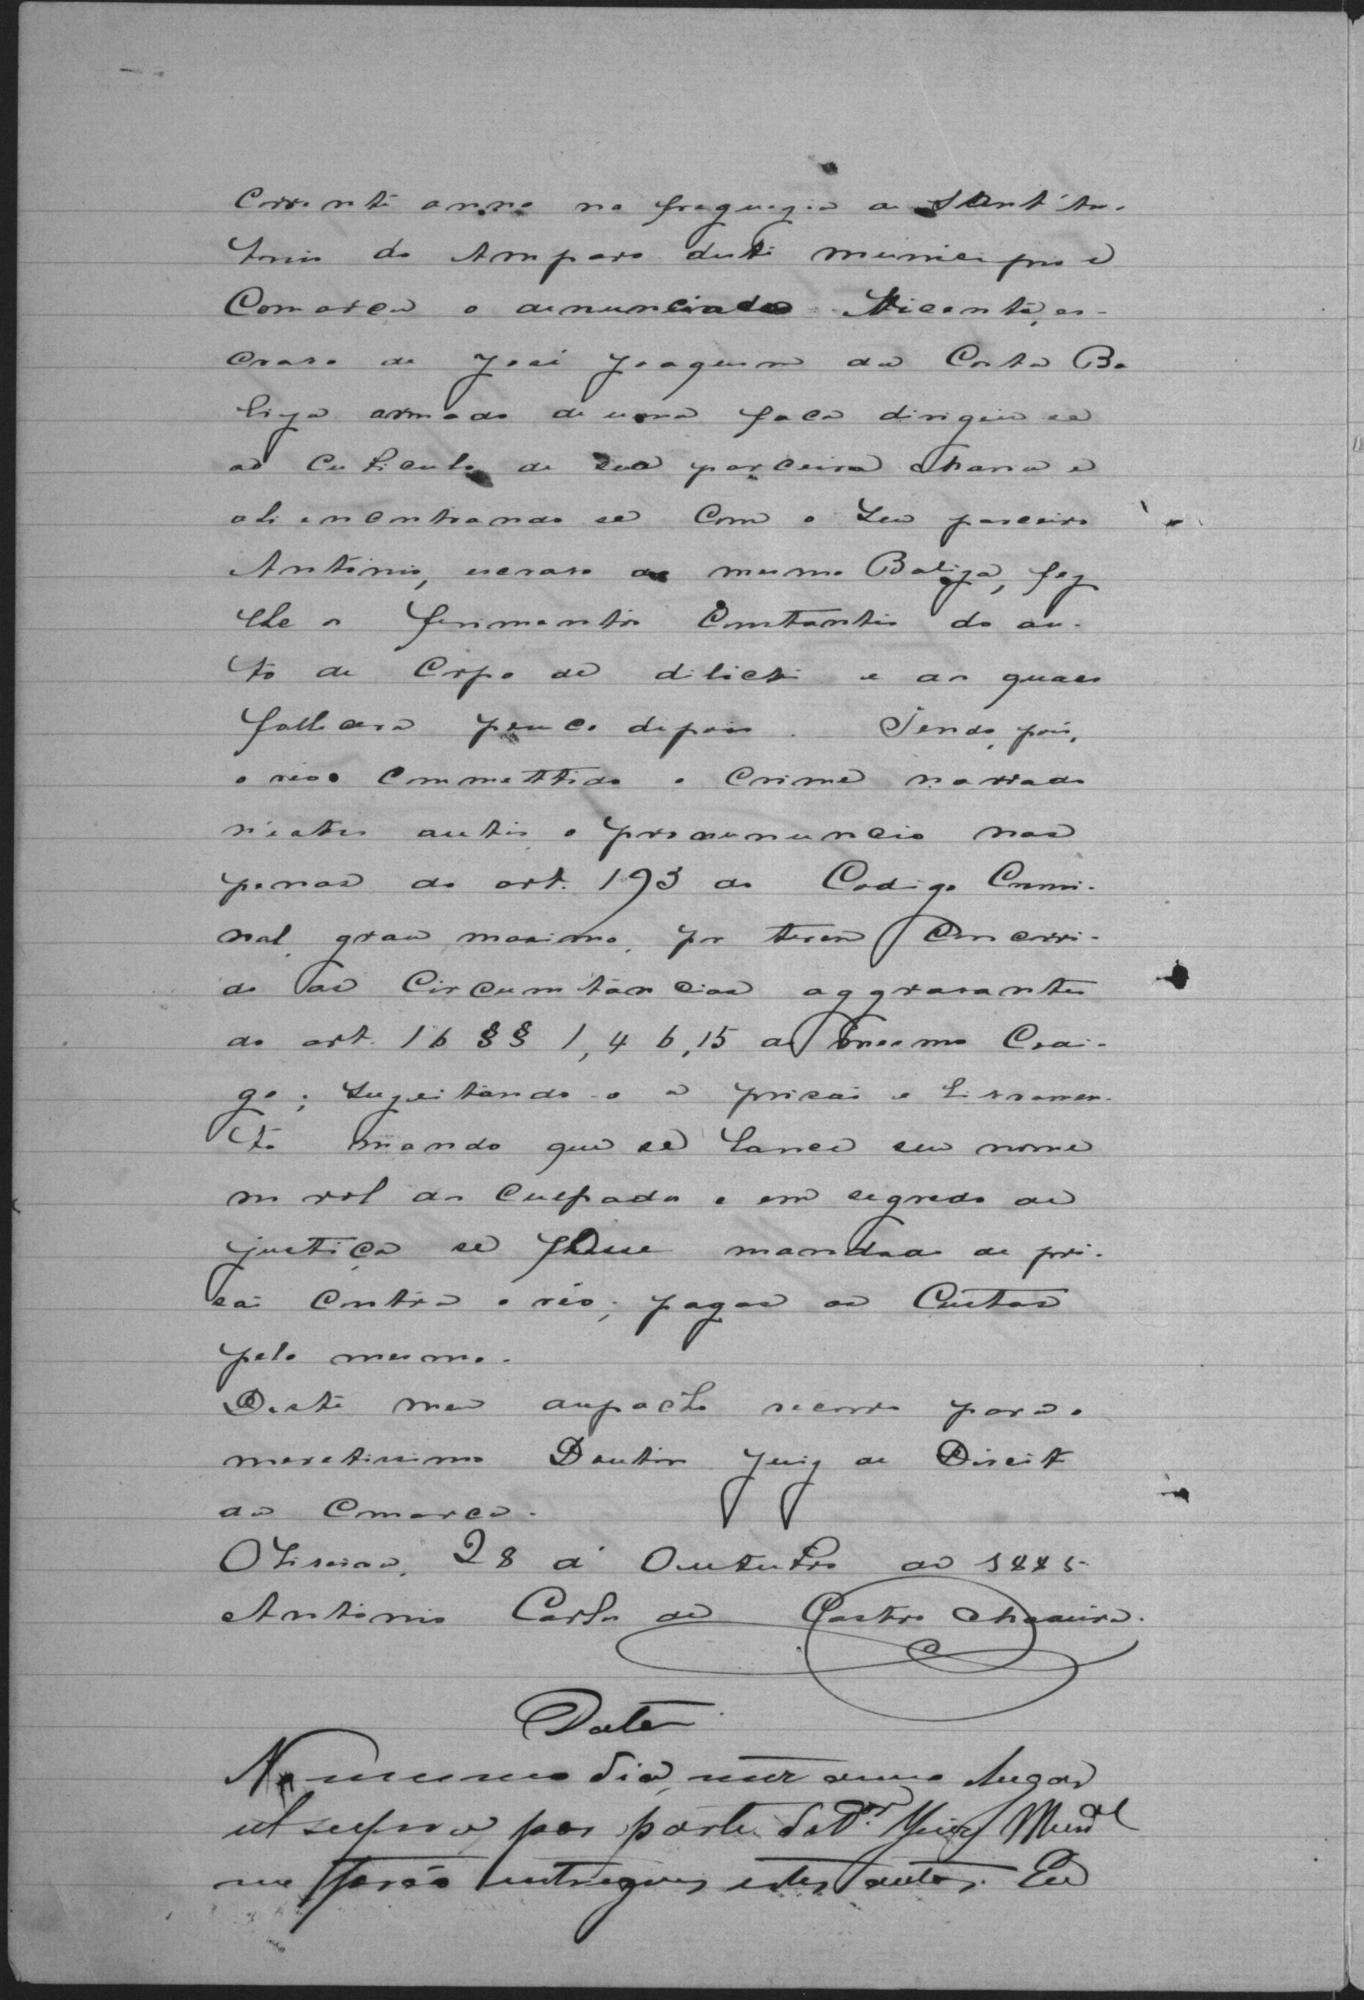 corrente anno na freguezia de Sant'An-
tonio do Amparo deste municipio e
Comarca o denunciado Vicente, es-
cravo de José Joaquim da Costa Ba
liza armado de uma faca dirigiu se
ao cubiculo de sua parceira Maria e
ali encontrando se com o seu parceiro
Antonio, escravo do mesmo Baliza, fez
lhe os ferimentos constantes do au-
to de corpo de dilicto e dos quaes
fallecera pouco depois. Tendo, pois,
o reo commettido o crime narrado
n'estes autos o pronuncio nas
penas do art. 193 do Codigo Crimi-
nal, grau maximo, por terem concorri-
do as circumstancias aggravantes
do art. 16 §§ 1, 4 6, 15 do mesmo Codi-
go; sugeitando-o a prisão e livramen-
to mando que se lance seu nome
no rol dos culpados e em segredo de
justiça se passe mandado de pri-
são contra o réo; pagas as custas
pelo mesmo.
Deste meu despacho recorro para o
meretissimo Doutor Juiz de Direito
da Comarca.
Oliveira, 28 d' Outubro de 1885
Antonio Carlos de Castro Madeira.
Data
No mesmo dia, mez anno lugar
ut supra por parte do Dr. Juiz Munal
me forão entregues estes autos. Eu